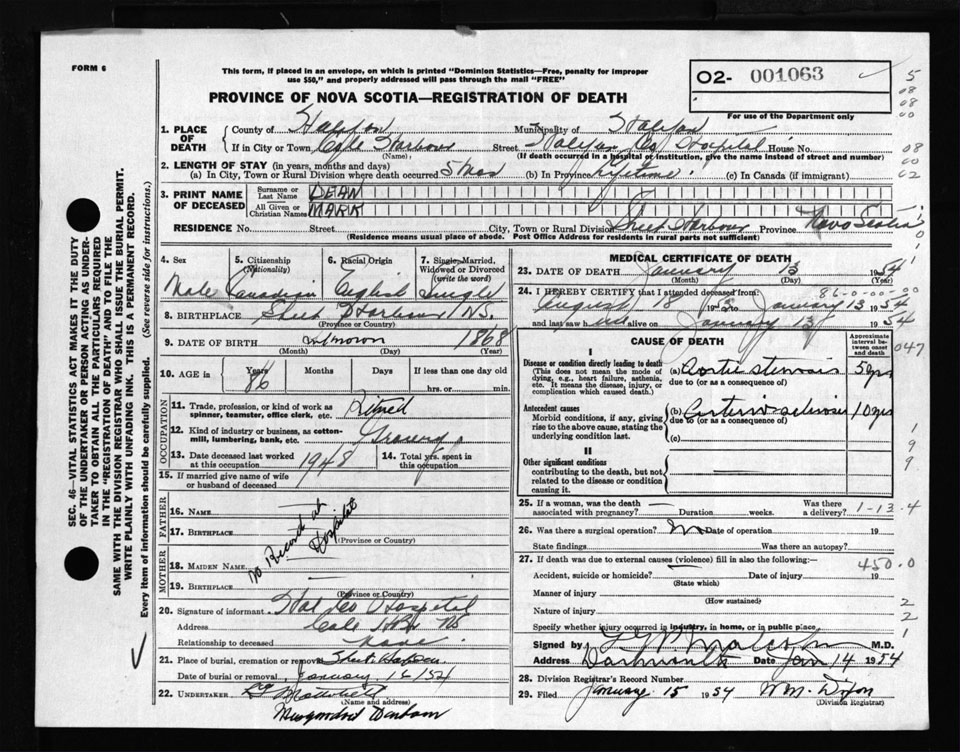 FORM 6
This form, if placed in an envelope, on which is printed "Dominion Statistics—Free, penalty for improper
use $50," and properly addressed will pass through the mail "FREE"
PROVINCE OF NOVA SCOTIA—REGISTRATION OF DEATH
O2- 001063
For use of the Department only
1. PLACE OF DEATH
County of Halifax Municipality of Halifax
If in City or Town Cole Harbour Street Halifax Co Hospital House No.
(Name) (If death occurred in a hospital or institution, give the name instead of street and number)
2. LENGTH OF STAY (in years, months and days)
(a) In City, Town or Rural Division where death occurred 5 mos (b) In Province lifetime (c) In Canada (if immigrant)
3. PRINT NAME OF DECEASED
Surname or Last Name DEAN
All Given or Christian Names MARK
RESIDENCE No. Street City, Town or Rural Division Sheet Harbour Province Nova Scotia
(Residence means usual place of abode. Post Office Address for residents in rural parts not sufficient)
4. Sex Male
5. Citizenship (Nationality) Canadian
6. Racial Origin English
7. Single, Married, Widowed or Divorced (write the word) Single
8. BIRTHPLACE Sheet Harbour NS.
(Province or Country)
9. DATE OF BIRTH unknown 1868
(Month) (Day) (Year)
10. AGE in Years 86 Months Days If less than one day
hrs. or min.
OCCUPATION
11. Trade, profession or kind of work as spinner, teamster, office clerk, etc. Retired
12. Kind of industry or business, as cotton-mill, lumbering, bank, etc. Grocery
13. Date deceased last worked at this occupation 1948
14. Total yrs. spent in this occupation
15. If married give name of wife or husband of deceased
FATHER
16. Name
17. Birthplace
(Province or Country)
MOTHER
18. Maiden Name
19. Birthplace
(Province or Country)
No Record at Hospital
20. Signature of informant Hal Co Hospital
Address Cole Hbr NS
Relationship to deceased None
21. Place of burial, cremation or removal Sheet Harbour
Date of burial or removal January 16/54
22. UNDERTAKER
(Name and address)
MEDICAL CERTIFICATE OF DEATH
23. DATE OF DEATH January 13 1954
(Month) (Day) (Year)
86-0-00-00
24. I HEREBY CERTIFY that I attended deceased from
August 18 1953 to January 13 1954
and last saw him alive on January 13 1954
CAUSE OF DEATH
Approximate interval between onset and death
I
Disease or condition directly leading to death
(This does not mean the mode of dying, e.g., heart failure, asthenia, etc. It means the disease, injury, or complication which caused death.)
(a) Aortic stenosis 5 yrs
due to (or as a consequence of)
Antecedent causes
Morbid conditions, if any, giving rise to the above cause, stating the underlying condition last.
(b) Arteriosclerosis 10 yrs
due to (or as a consequence of)
(c)
II
Other significant conditions
contributing to the death, but not related to the disease or condition causing it.
25. If a woman, was the death associated with pregnancy? Duration weeks. Was there a delivery?
1-13-4
26. Was there a surgical operation? No Date of operation 19
State findings Was there an autopsy?
27. If death was due to external causes (violence) fill in also the following:—
450.0
Accident, suicide or homicide? Date of injury 19
(State which)
Manner of injury
(How sustained)
Nature of injury
Specify whether injury occurred in industry, in home, or in public place
Signed by Malcolm M.D.
Address Dartmouth Date Jan 14 1954
28. Division Registrar's Record Number
29. Filed January 15 1954 Wm. Dixon
(Division Registrar)
SEC. 46—VITAL STATISTICS ACT MAKES IT THE DUTY
OF THE UNDERTAKER OR PERSON ACTING AS UNDERTAKER TO OBTAIN ALL THE PARTICULARS REQUIRED
IN THE "REGISTRATION OF DEATH" AND TO FILE THE
SAME WITH THE DIVISION REGISTRAR WHO SHALL ISSUE THE BURIAL PERMIT.
WRITE PLAINLY WITH UNFADING INK. THIS IS A PERMANENT RECORD.
Every item of information should be carefully supplied. (See reverse side for instructions.)
5
08
08
00
08
00
02
047
1
9
9
2
2
1